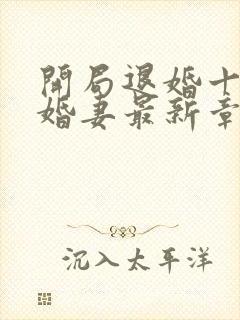 開局退婚十
婚妻最新章
沉入太平洋